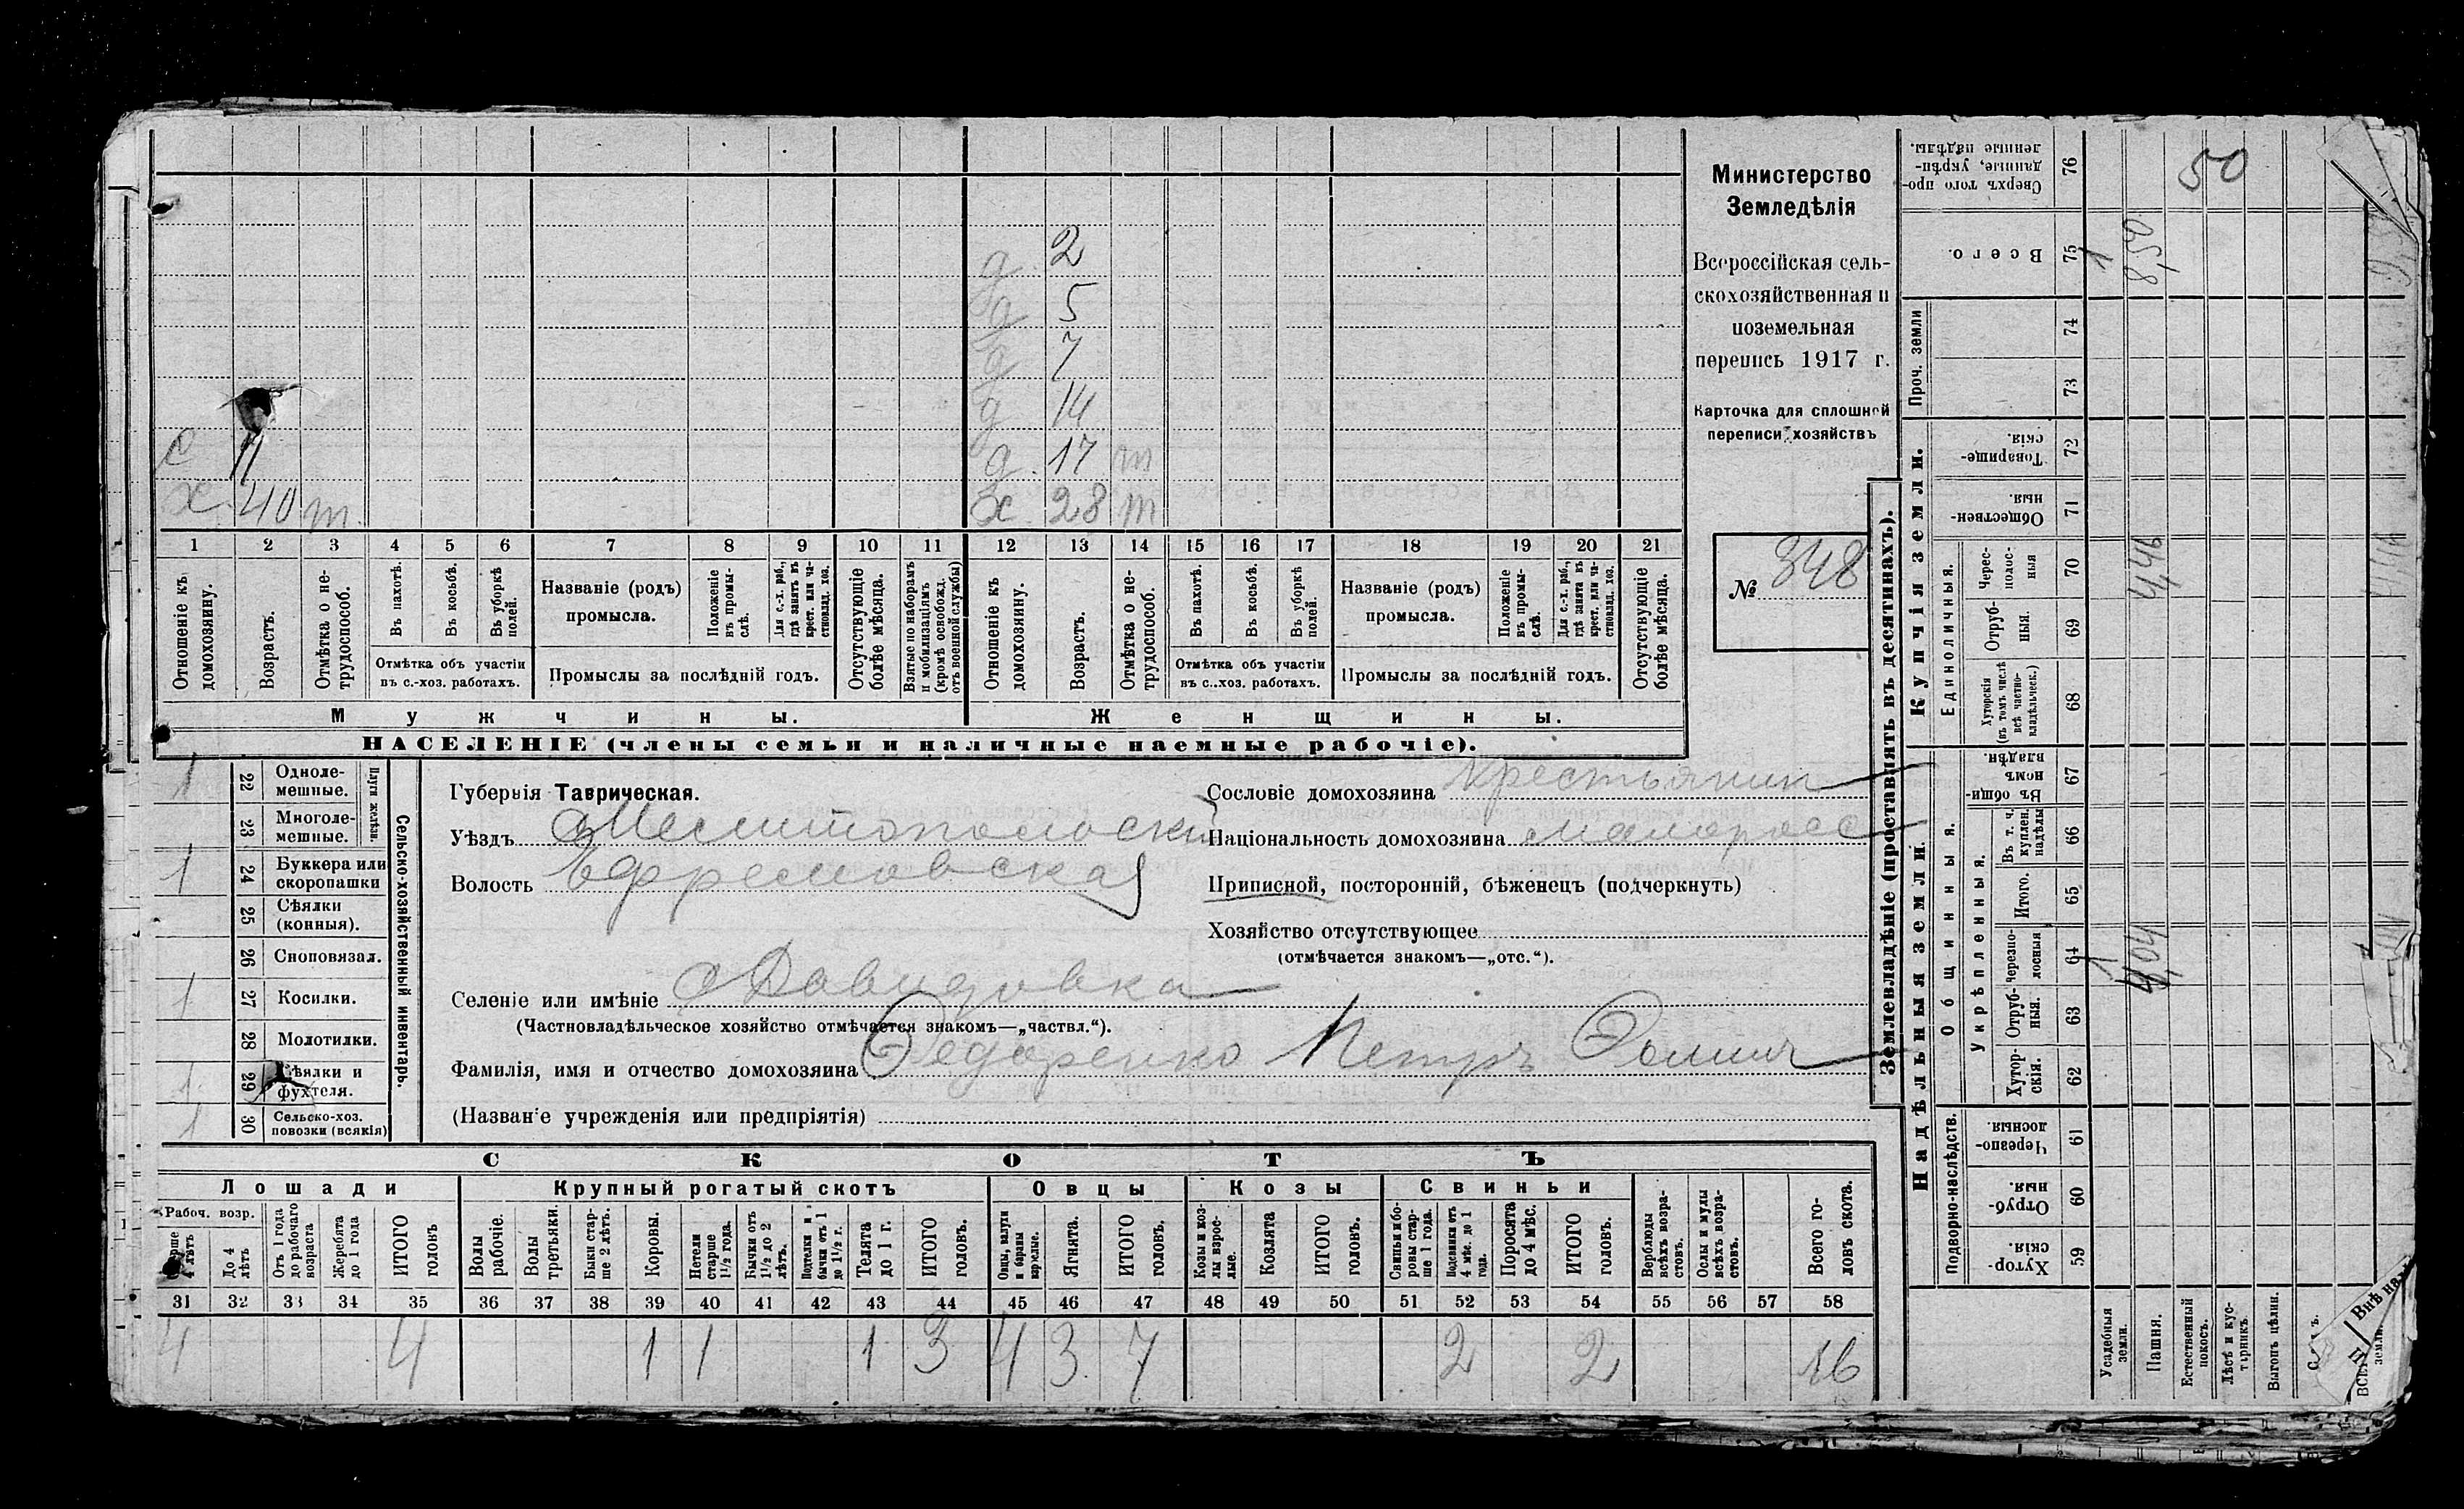 Министерство
Земледѣлія
Всероссійская сель-
скохозяйственная и
поземельная
перепись 1917 г.
Карточка для сплошной
переписи хозяйствъ
№ 348
д. 2
д 5
д 7
д 14
с 11 д. 17 т
х. 40 т. х 28 т
1 2 3 4 5 6 7 8 9 10 11 12 13 14 15 16 17 18 19 20 21
Отношеніе къ домохозяину.
Возрастъ.
Отмѣтка о не-трудоспособ.
Въ пахотѣ.
Въ косьбѣ.
Въ уборкѣ полей.
Отмѣтка объ участіи
въ с.-хоз. работахъ.
Названіе (родъ)
промысла.
Положеніе въ промы-слѣ.
Для с.-х. раб., гдѣ занятъ въ крест. или ча-стновлад. хоз.
Промыслы за послѣдній годъ.
Отсутствующіе болѣе мѣсяца.
Взятые по наборамъ и мобилизаціямъ (кромѣ освобожд. отъ военной службы)
Отношеніе къ домохозяину.
Возрастъ.
Отмѣтка о не-трудоспособ.
Въ пахотѣ.
Въ косьбѣ.
Въ уборкѣ полей.
Отмѣтка объ участіи
въ с..хоз. работахъ.
Названіе (родъ)
промысла.
Положеніе въ промы-слѣ.
Для с.-х. раб., гдѣ занята въ крест. или ча-стновлад. хоз.
Промыслы за послѣдній годъ.
Отсутствующіе болѣе мѣсяца.
Мужчины. Женщины.
НАСЕЛЕНІЕ (члены семьи и наличные наемные рабочіе).
Сельско-хозяйственный инвентарь.
Плуги желѣзн.
1 22 Одноле-мешные.
23 Многоле-мешные.
1 24 Буккера или скоропашки
25 Сѣялки (конныя).
26 Сноповязал.
1 27 Косилки.
28 Молотилки.
1 29 Вѣялки и фухтеля.
1 30 Сельско-хоз. повозки (всякія)
Губернія Таврическая.
Уѣздъ Мелитопольскій
Волость Ефремовская
Селеніе или имѣніе Давидовка
(Частновладѣльческое хозяйство отмѣчается знакомъ—„частвл.“).
Фамилія, имя и отчество домохозяина Федоренко Петръ Фомич
(Названіе учрежденія или предпріятія)
Сословіе домохозяина крестьянин
Національность домохозяина малоросс
Приписной, посторонній, бѣженецъ (подчеркнуть)
Хозяйство отсутствующее
(отмѣчается знакомъ—„отс.“).
СКОТЪ
Лошади Крупный рогатый скотъ Овцы Козы Свиньи
Рабоч. возр.
Старше 4 лѣтъ
До 4 лѣтъ
Отъ 1 года до рабочаго возраста
Жеребята до 1 года
ИТОГО головъ
Волы рабочіе.
Волы третьяки.
Быки стар-ше 2 лѣтъ.
Коровы.
Нетели старше 1½ года.
Бычки отъ 1½ до 2 лѣтъ.
Подтелки и бычки отъ 1 до 1½ г.
Телята до 1 г.
ИТОГО головъ.
Овцы, валухи и бараны взрослые.
Ягнята.
ИТОГО головъ.
Козы и коз-лы взрос-лые.
Козлята
ИТОГО головъ.
Свиньи и бо-ровы стар-ше 1 года.
Подсвинки отъ 4 мѣс. до 1 года.
Поросята до 4 мѣс.
ИТОГО головъ.
Верблюды всѣхъ возра-стовъ.
Ослы и мулы всѣхъ возра-стовъ.
Всего го-ловъ скота.
31 32 33 34 35 36 37 38 39 40 41 42 43 44 45 46 47 48 49 50 51 52 53 54 55 56 57 58
4 4 1 1 1 3 4 3 7 2 2 16
Землевладѣніе (проставлять въ десятинахъ).
Надѣльныя земли. Купчія земли. Проч. земли
Подворно-наслѣдств. Общинныя. Укрѣпленныя. Единоличныя.
Хутор-скія. 59
Отруб-ныя. 60
Черезпо-лосныя 61
Хутор-скія. 62
Отруб-ныя. 63
Черезпо-лосныя 64 1 4,04
Итого. 65
Въ т. ч. куплен. надѣлы 66
Въ общин-номъ владѣн. 67
Хуторскія (въ томъ числѣ всѣ частно-владѣльческ.) 68
Отруб-ныя. 69
Черес-полос-ныя 70 4,46
Обществен-ныя. 71
Товарище-скія. 72
73
74
Всего. 75 1 8,50
Сверхъ того про-данные, укрѣп-ленные надѣлы. 76 50
Усадебныя земли.
Пашня.
Естественный покосъ.
Лѣсъ и кус-тарникъ.
Выгонъ цѣлин.
Внѣ на